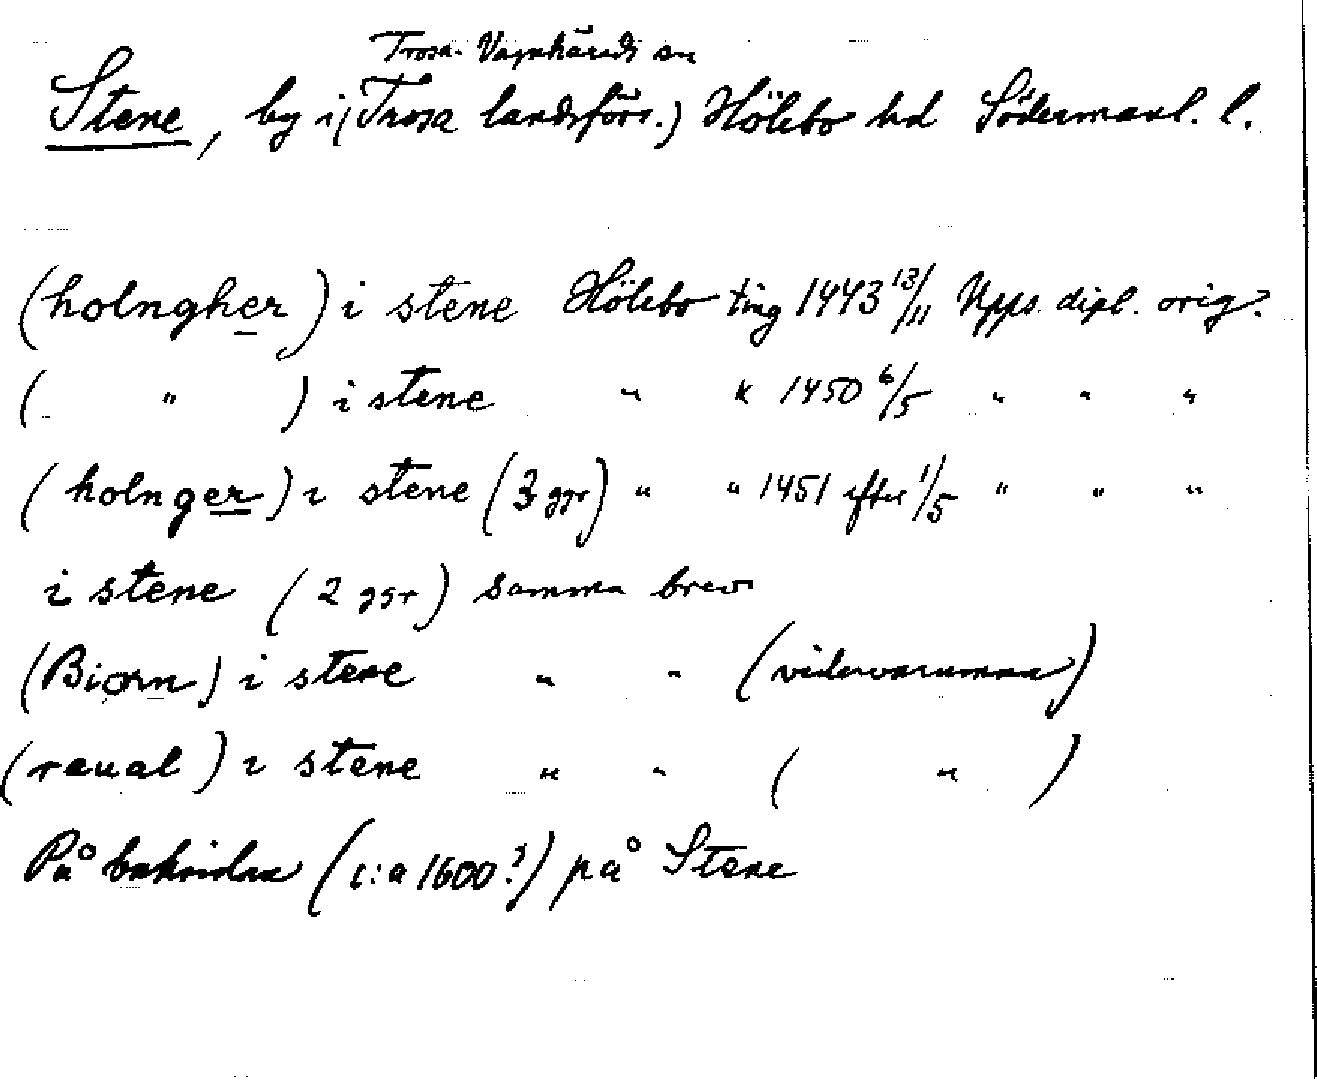 Trosa-Vagnhärads sn
Stene, by i (Trosa landsförs.) Hölebo hd Södermanl. l.
(holngher) i stene Hölebo ting 1443 13/11 Upps. dipl. orig?
( " ) i stene " " 1450 6/5 " " "
(holnger) i stene (3 ggr) " " 1451 efter 1/5 " " "
i stene (2 ggr) samma brev
(Biorn) i stene " " (vidervaruman)
(raual) i stene " " ( " )
På baksidan (c:a 1600?) på Stene